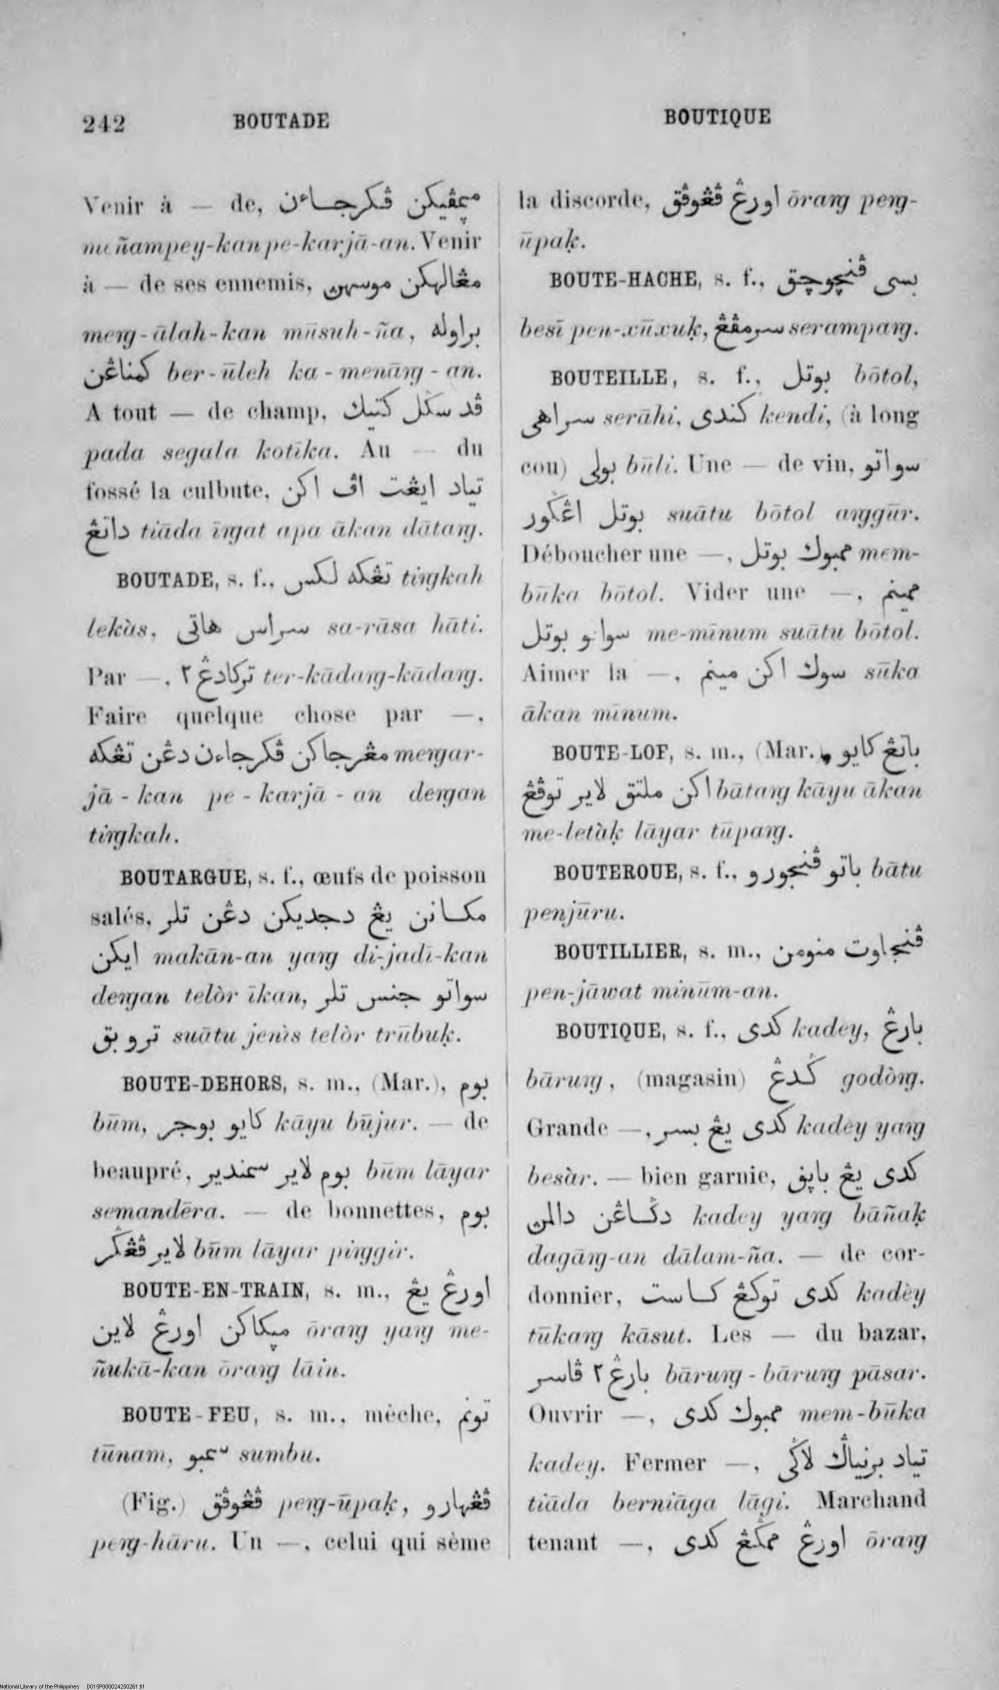 242 BOUTADE BOUTIQUE
Venir à — de, ميمڤيكن ڤكرجاءن
meñampey-kan pe-karjā-an. Venir
à — de ses ennemis, مڠالهكن موسهن
meŋ-ālah-kan mūsuh-ña, براوله
كمناڠن ber-ūleh ka-menāŋ-an.
A tout — de champ, ڤد سڬل كتيك
pada segala kotīka. Au — du
fossé la culbute, تياد ايڠت اڤ اكن
داتڠ tiāda īŋat apa ākan dātaŋ.
BOUTADE, s. f., تڠكه لكس tiŋkah
lekàs, سراس هاتي sa-rāsa hāti.
Par —, تركادڠ ٢ ter-kādaŋ-kādaŋ.
Faire quelque chose par —,
مڠرجاكن ڤكرجاءن دڠن تڠكه meŋar-
jā-kan pe-karjā-an deŋan
tiŋkah.
BOUTARGUE, s. f., œufs de poisson
salés, مكانن يڠ دجديكن دڠن تلر
ايكن makān-an yaŋ di-jadī-kan
deŋan telòr īkan, سواتو جنس تلر
تروبق suātu jenìs telòr trūbuḳ.
BOUTE-DEHORS, s. m., (Mar.), بوم
būm, كايو بوجر kāyu būjur. — de
beaupré, بوم لاير سمندير būm lāyar
semandēra. — de bonnettes, بوم
لاير ڤڠڬر būm lāyar piŋgir.
BOUTE-EN-TRAIN, s. m., اورڠ يڠ
ميكاكن اورڠ لاين ōraŋ yaŋ me-
ñukā-kan ōraŋ lāin.
BOUTE-FEU, s. m., mèche, تونم
tūnam, سمبو sumbu.
(Fig.) ڤڠوڤق peŋ-ūpaḳ, ڤڠهارو
peŋ-hāru. Un —, celui qui sème
la discorde, اورڠ ڤڠوڤق ōraŋ peŋ-
ūpaḳ.
BOUTE-HACHE, s. f., بسي ڤنچوچق
besī pen-xūxuḳ, سرمڤڠ serampaŋ.
BOUTEILLE, s. f., بوتل bōtol,
سراهي serāhi, كندي kendi, (à long
cou) بولي būli. Une — de vin, سواتو
بوتل اڠڬور suātu bōtol aŋgūr.
Déboucher une —, ممبوك بوتل mem-
būka bōtol. Vider une —, ممينم
سواتو بوتل me-mīnum suātu bōtol.
Aimer la —, سوك اكن مينم sūka
ākan mīnum.
BOUTE-LOF, s. m., (Mar.), باتڠ كايو
اكن ملتق لاير توڤڠ bātaŋ kāyu ākan
me-letàḳ lāyar tūpaŋ.
BOUTEROUE, s. f., باتو ڤنجورو bātu
penjūru.
BOUTILLIER, s. m., ڤنجاوت منومن
pen-jāwat minūm-an.
BOUTIQUE, s. f., كدي kadey, بارڠ
bāruŋ, (magasin) ڬدڠ godòŋ.
Grande —, كدي يڠ بسر kadèy yaŋ
besàr. — bien garnie, كدي يڠ باڽق
دڬاڠن دالمن kadey yaŋ bāñaḳ
dagāŋ-an dālam-ña. — de cor-
donnier, كدي توكڠ كاست kadèy
tūkaŋ kāsut. Les — du bazar,
بارڠ ٢ ڤاسر bāruŋ-bāruŋ pāsar.
Ouvrir —, ممبوك كدي mem-būka
kadey. Fermer —, تياد برنياڬ لاڬي
tiāda berniāga lāgi. Marchand
tenant —, اورڠ ممڬڠ كدي ōraŋ
National Library of the Philippines